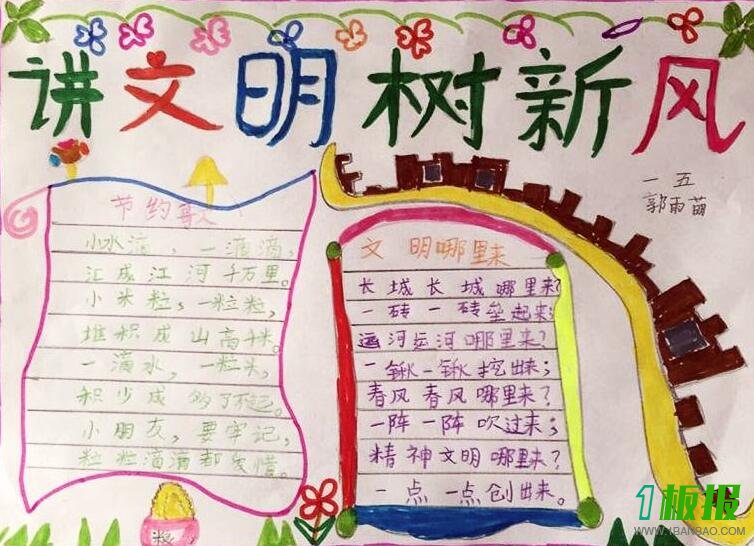 讲文明树新风
一 五
郭雨苗
节约歌
小水滴，一滴滴，
汇成江河千万里。
小米粒，一粒粒，
堆积成山高千米。
一滴水，一粒米，
积少成多了不起。
小朋友，要牢记，
粒粒滴滴都爱惜。
文明哪里来
长城长城哪里来？
一砖一砖垒起来；
运河运河哪里来？
一锹一锹挖出来；
春风春风哪里来？
一阵一阵吹过来；
精神文明哪里来？
一点一点创出来。
粮
1板报
WWW.1BANBAO.COM